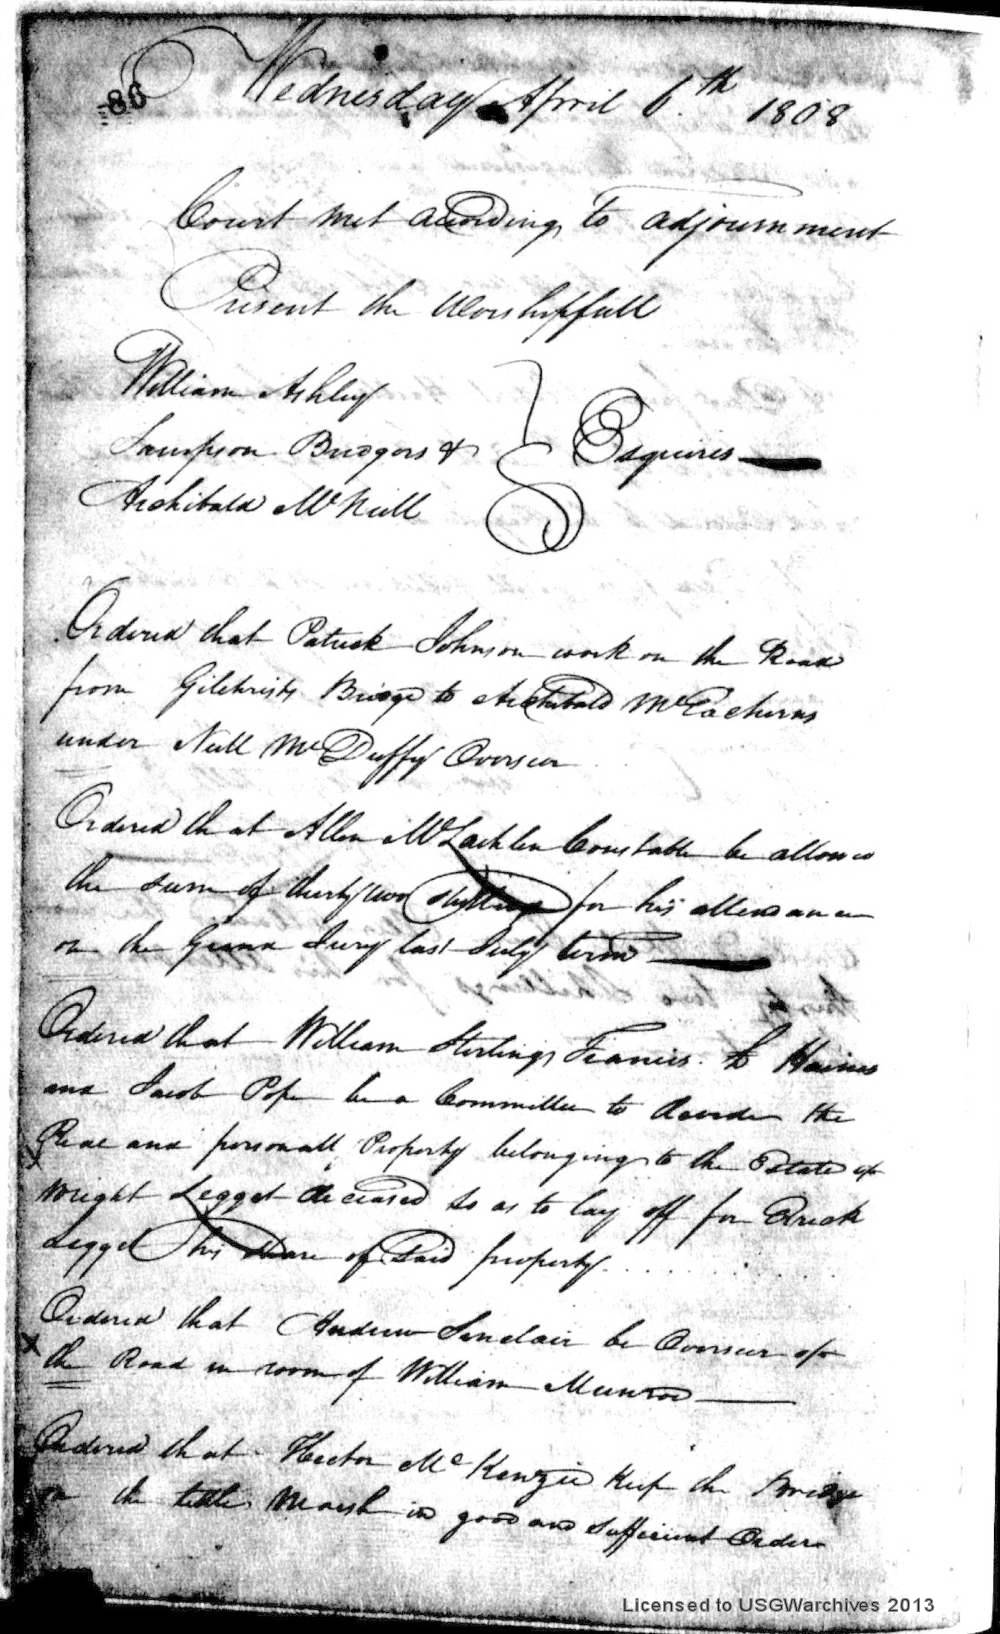 86
Wednesday April 6.th 1808
Court met according to adjournment
Present the Worshipfull
William Ashley
Sampson Bridgers &
Esquires
Archibald McNeill
Ordered that Patrick Johnson work on the Road
from Gilchrists Bridge to Archibald McEacherns
under Neill McDuffy Overseer
Ordered that Allen McLachlen Constable be allowed
the sum of thirty two shillings for his attendance
on the Grand Jury last July term
Ordered that William Sterling, Francis Haines
and Jacob Pope be a Committee to devide the
Real and personall Property belonging to the Estate of
Wright Legget deceased so as to lay off for
Legget his share of Said property
Ordered that Andrew Sinclair be Overseer of
the Road in room of William Munroe
Ordered that Hector McKenzie keep the Bridge
on the little Marsh in good and sufficient Order
Licensed to USGWarchives 2013